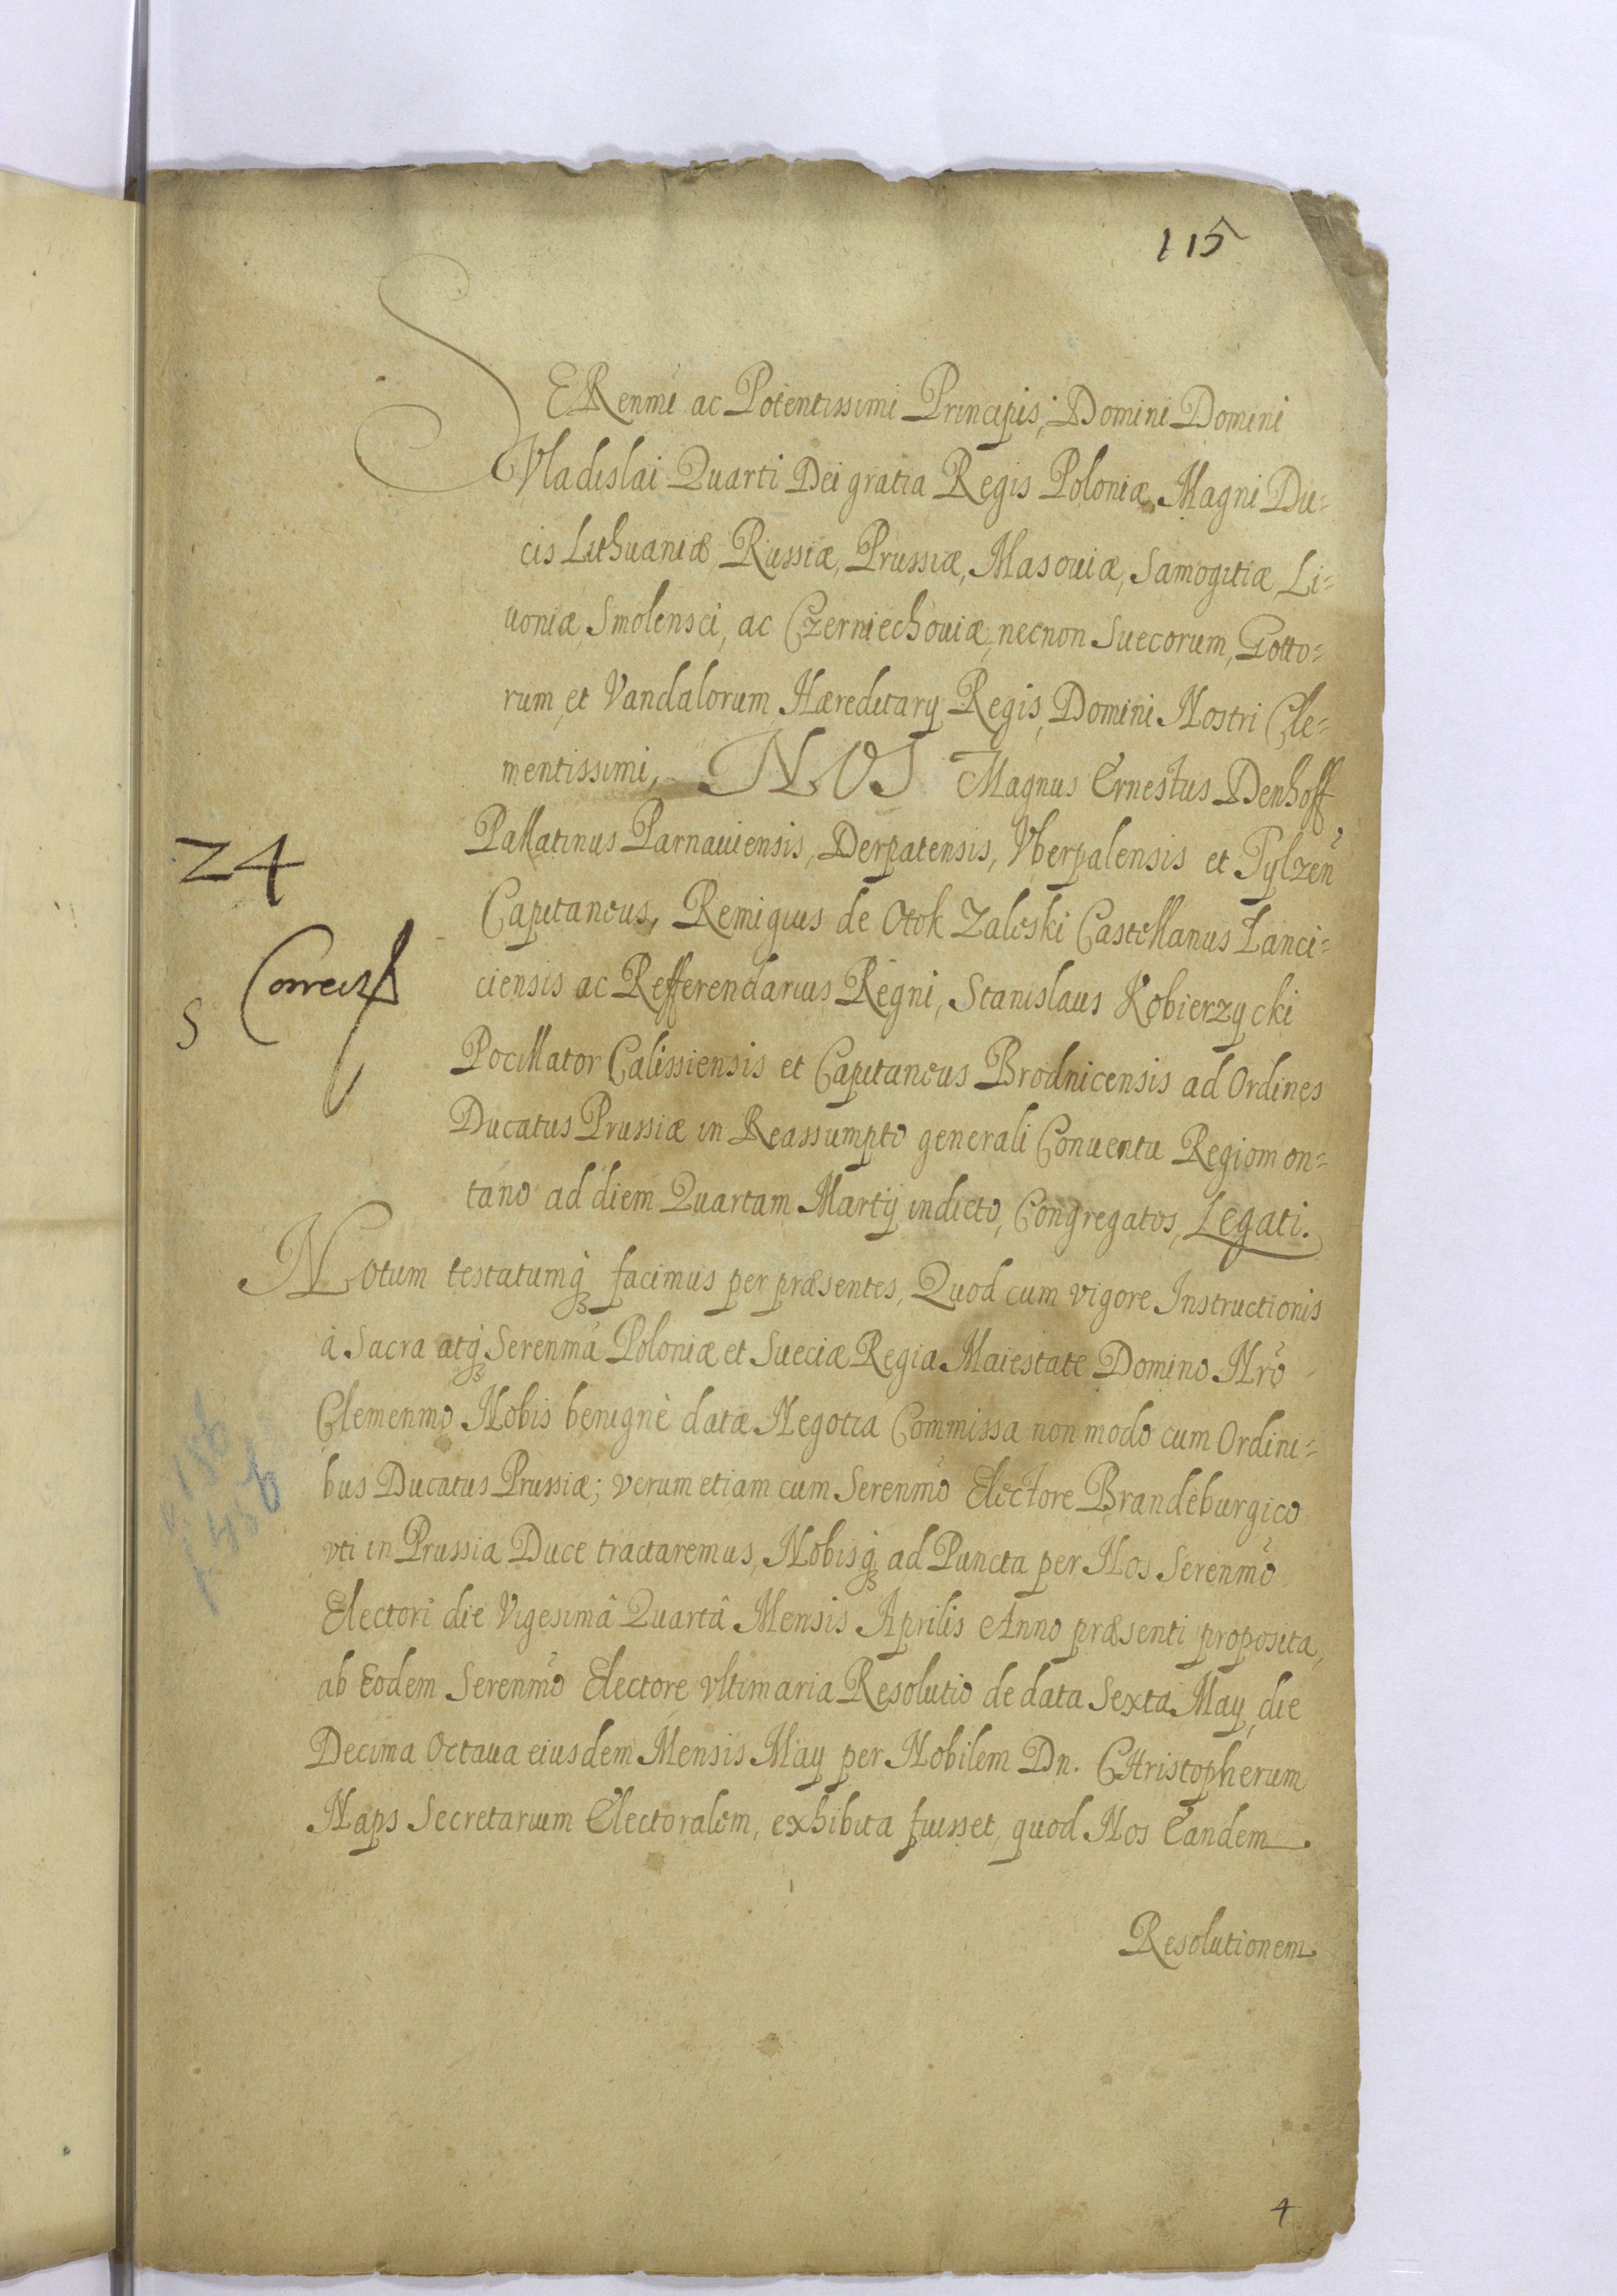 115
SERenmi ac Potentissimi Principis, Domini Domini
Vladislai Quarti Dei gratia Regis Poloniæ, Magni Du=
cis Lithuaniæ, Russiæ, Prussiæ, Masouiæ, Samogitiæ, Li=
uoniæ, Smolensci, ac Czerniechouiæ, necnon Suecorum, Gotto=
rum, et Vandalorum Hæreditarÿ Regis, Domini Nostri Cle=
mentissimi, NOS Magnus Ernestus Denhoff
Pallatinus Parnauiensis, Derpatensis, Vberpalensis et Tylzen̄
24
Capitaneus, Remigius de Otok Zaleski Castellanus Lanci=
S Correct
ciensis ac Refferendarius Regni, Stanislaus Kobierzycki
Pocillator Calissiensis et Capitaneus Brodnicensis ad Ordines
Ducatus Prussiæ in Reassumpto generali Conuentu Regiomon=
tano ad diem Quartam Martÿ indicto, Congregatos, Legati.
Notum testatumq́ꝫ facimus per præsentes, Quod cum vigore Instructionis
à Sacra atq́ꝫ Serenmâ Poloniæ et Sueciæ Regia Maiestate Domino Nrō
Clemenmo Nobis benignè datæ Negotia Commissa non modo cum Ordini=
bus Ducatus Prussiæ; verum etiam cum Serenmō Electore Brandeburgico
vti in Prussia Duce tractaremus, Nobisq́ꝫ ad Puncta per Nos Serenmō
Electori die Vigesimâ Quartâ Mensis Aprilis Anno præsenti proposita,
ab Eodem Serenmō Electore vltimaria Resolutio de data Sexta Maÿ, die
Decima Octaua eiusdem Mensis Maÿ per Nobilem Dn. CHristopherum
Naps Secretarium Electoralem, exhibita fuisset, quod Nos Eandem
Resolutionem
4